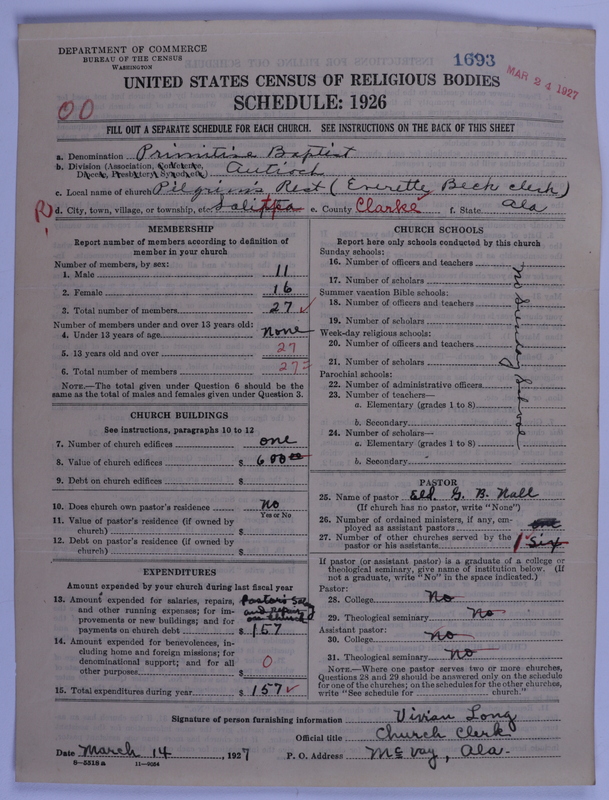 DEPARTMENT OF COMMERCE
BUREAU OF THE CENSUS
WASHINGTON
1693
MAR 24 1927
UNITED STATES CENSUS OF RELIGIOUS BODIES
SCHEDULE: 1926
00
FILL OUT A SEPARATE SCHEDULE FOR EACH CHURCH. SEE INSTRUCTIONS ON THE BACK OF THIS SHEET
a. Denomination Primitive Baptist
b. Division (Association, Conference, Diocese, Presbytery, Synod, etc.) Antioch
c. Local name of church Pilgrim's Rest (Everette Beck clerk)
R, d. City, town, village, or township, etc. Salitpa e. County Clarke f. State Ala
MEMBERSHIP
Report number of members according to definition of
member in your church
Number of members, by sex:
1. Male 11
2. Female 16
3. Total number of members 27 ✓
Number of members under and over 13 years old:
4. Under 13 years of age none
5. 13 years old and over 27
6. Total number of members 27
NOTE.—The total given under Question 6 should be the
same as the total of males and females given under Question 3.
CHURCH BUILDINGS
See instructions, paragraphs 10 to 12
7. Number of church edifices one
8. Value of church edifices $ 600 00
9. Debt on church edifices $
10. Does church own pastor's residence No
Yes or No
11. Value of pastor's residence (if owned by
church) $
12. Debt on pastor's residence (if owned by
church) $
EXPENDITURES
Amount expended by your church during last fiscal year
13. Amount expended for salaries, repairs,
and other running expenses; for im-
provements or new buildings; and for
payments on church debt $ 157
14. Amount expended for benevolences, in-
cluding home and foreign missions; for
denominational support; and for all
other purposes $ 0
15. Total expenditures during year $ 157 ✓
CHURCH SCHOOLS
Report here only schools conducted by this church
Sunday schools:
16. Number of officers and teachers
17. Number of scholars
Summer vacation Bible schools:
18. Number of officers and teachers
19. Number of scholars
Week-day religious schools:
20. Number of officers and teachers
21. Number of scholars
Parochial schools:
22. Number of administrative officers
23. Number of teachers—
a. Elementary (grades 1 to 8)
b. Secondary
24. Number of scholars—
a. Elementary (grades 1 to 8)
b. Secondary
no Sunday School
PASTOR
25. Name of pastor Eld. G. B. Nall
(If church has no pastor, write "None")
26. Number of ordained ministers, if any, em-
ployed as assistant pastors one
27. Number of other churches served by the
pastor or his assistants six
If pastor (or assistant pastor) is a graduate of a college or
theological seminary, give name of institution below. (If
not a graduate, write "No" in the space indicated.)
Pastor:
28. College No
29. Theological seminary No
Assistant pastor:
30. College No
31. Theological seminary No
NOTE.—Where one pastor serves two or more churches,
Questions 28 and 29 should be answered only on the schedule
for one of the churches; on the schedules for the other churches,
write "See schedule for church."
Signature of person furnishing information Vivian Long
Official title Church Clerk
Date March 14, 1927 P. O. Address McVay, Ala-
8—5518 a 11—9034